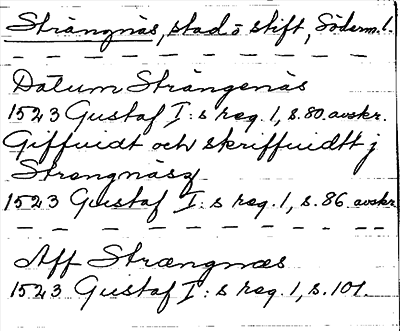 Strängnäs, stad o stift, Söderm. l.
Datum Strängenäs
1523 Gustaf I:s reg. 1, s. 80. avskr.
Giffuidt och skriffuidtt j
Strengnäsz
1523 Gustaf I:s reg. 1, s. 86 avskr
Aff Strængnæs
1523 Gustaf I:s reg. 1, s. 101.